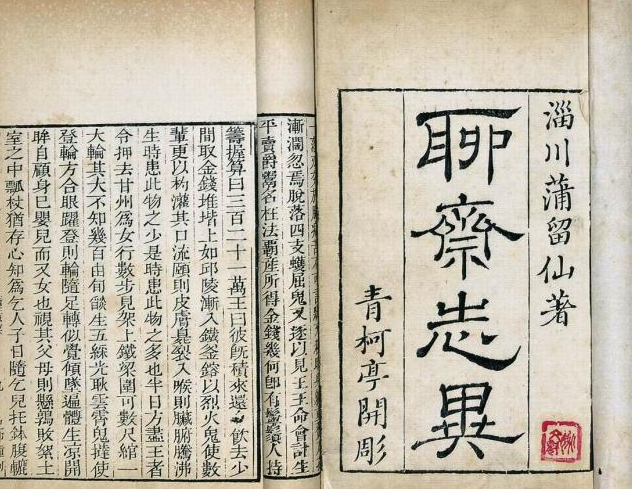 淄川蒲留仙著
聊齋志異
青柯亭開彫
漸濶忽焉脫落四支蠖屈鬼叉逐以見王王命會計生
平賣爵鬻名枉法霸產所得金錢幾何卽有鬡鬚人持
籌握算曰三百二十一萬王曰彼旣積來還飲去少
間取金錢堆堦上如邱陵漸入鐵釜鎔以烈火鬼使數
輩更以杓灌其口流頤則皮膚臭裂入喉則臟腑騰沸
生時患此物之少是時患此物之多也半日方盡王者
令押去甘州爲女行數步見架上鐵梁圍可數尺綰一
火輪其大不知幾百由旬燄生五綵光耿雲霄鬼撻使
登輪方合眼躍登則輪隨足轉似覺傾墜遍體生凉開
眸自顧身已嬰兒而又女也視其父母則懸鶉敗絮土
室之中瓢杖猶存心知爲乞人子日隨乞兒托鉢腹轆